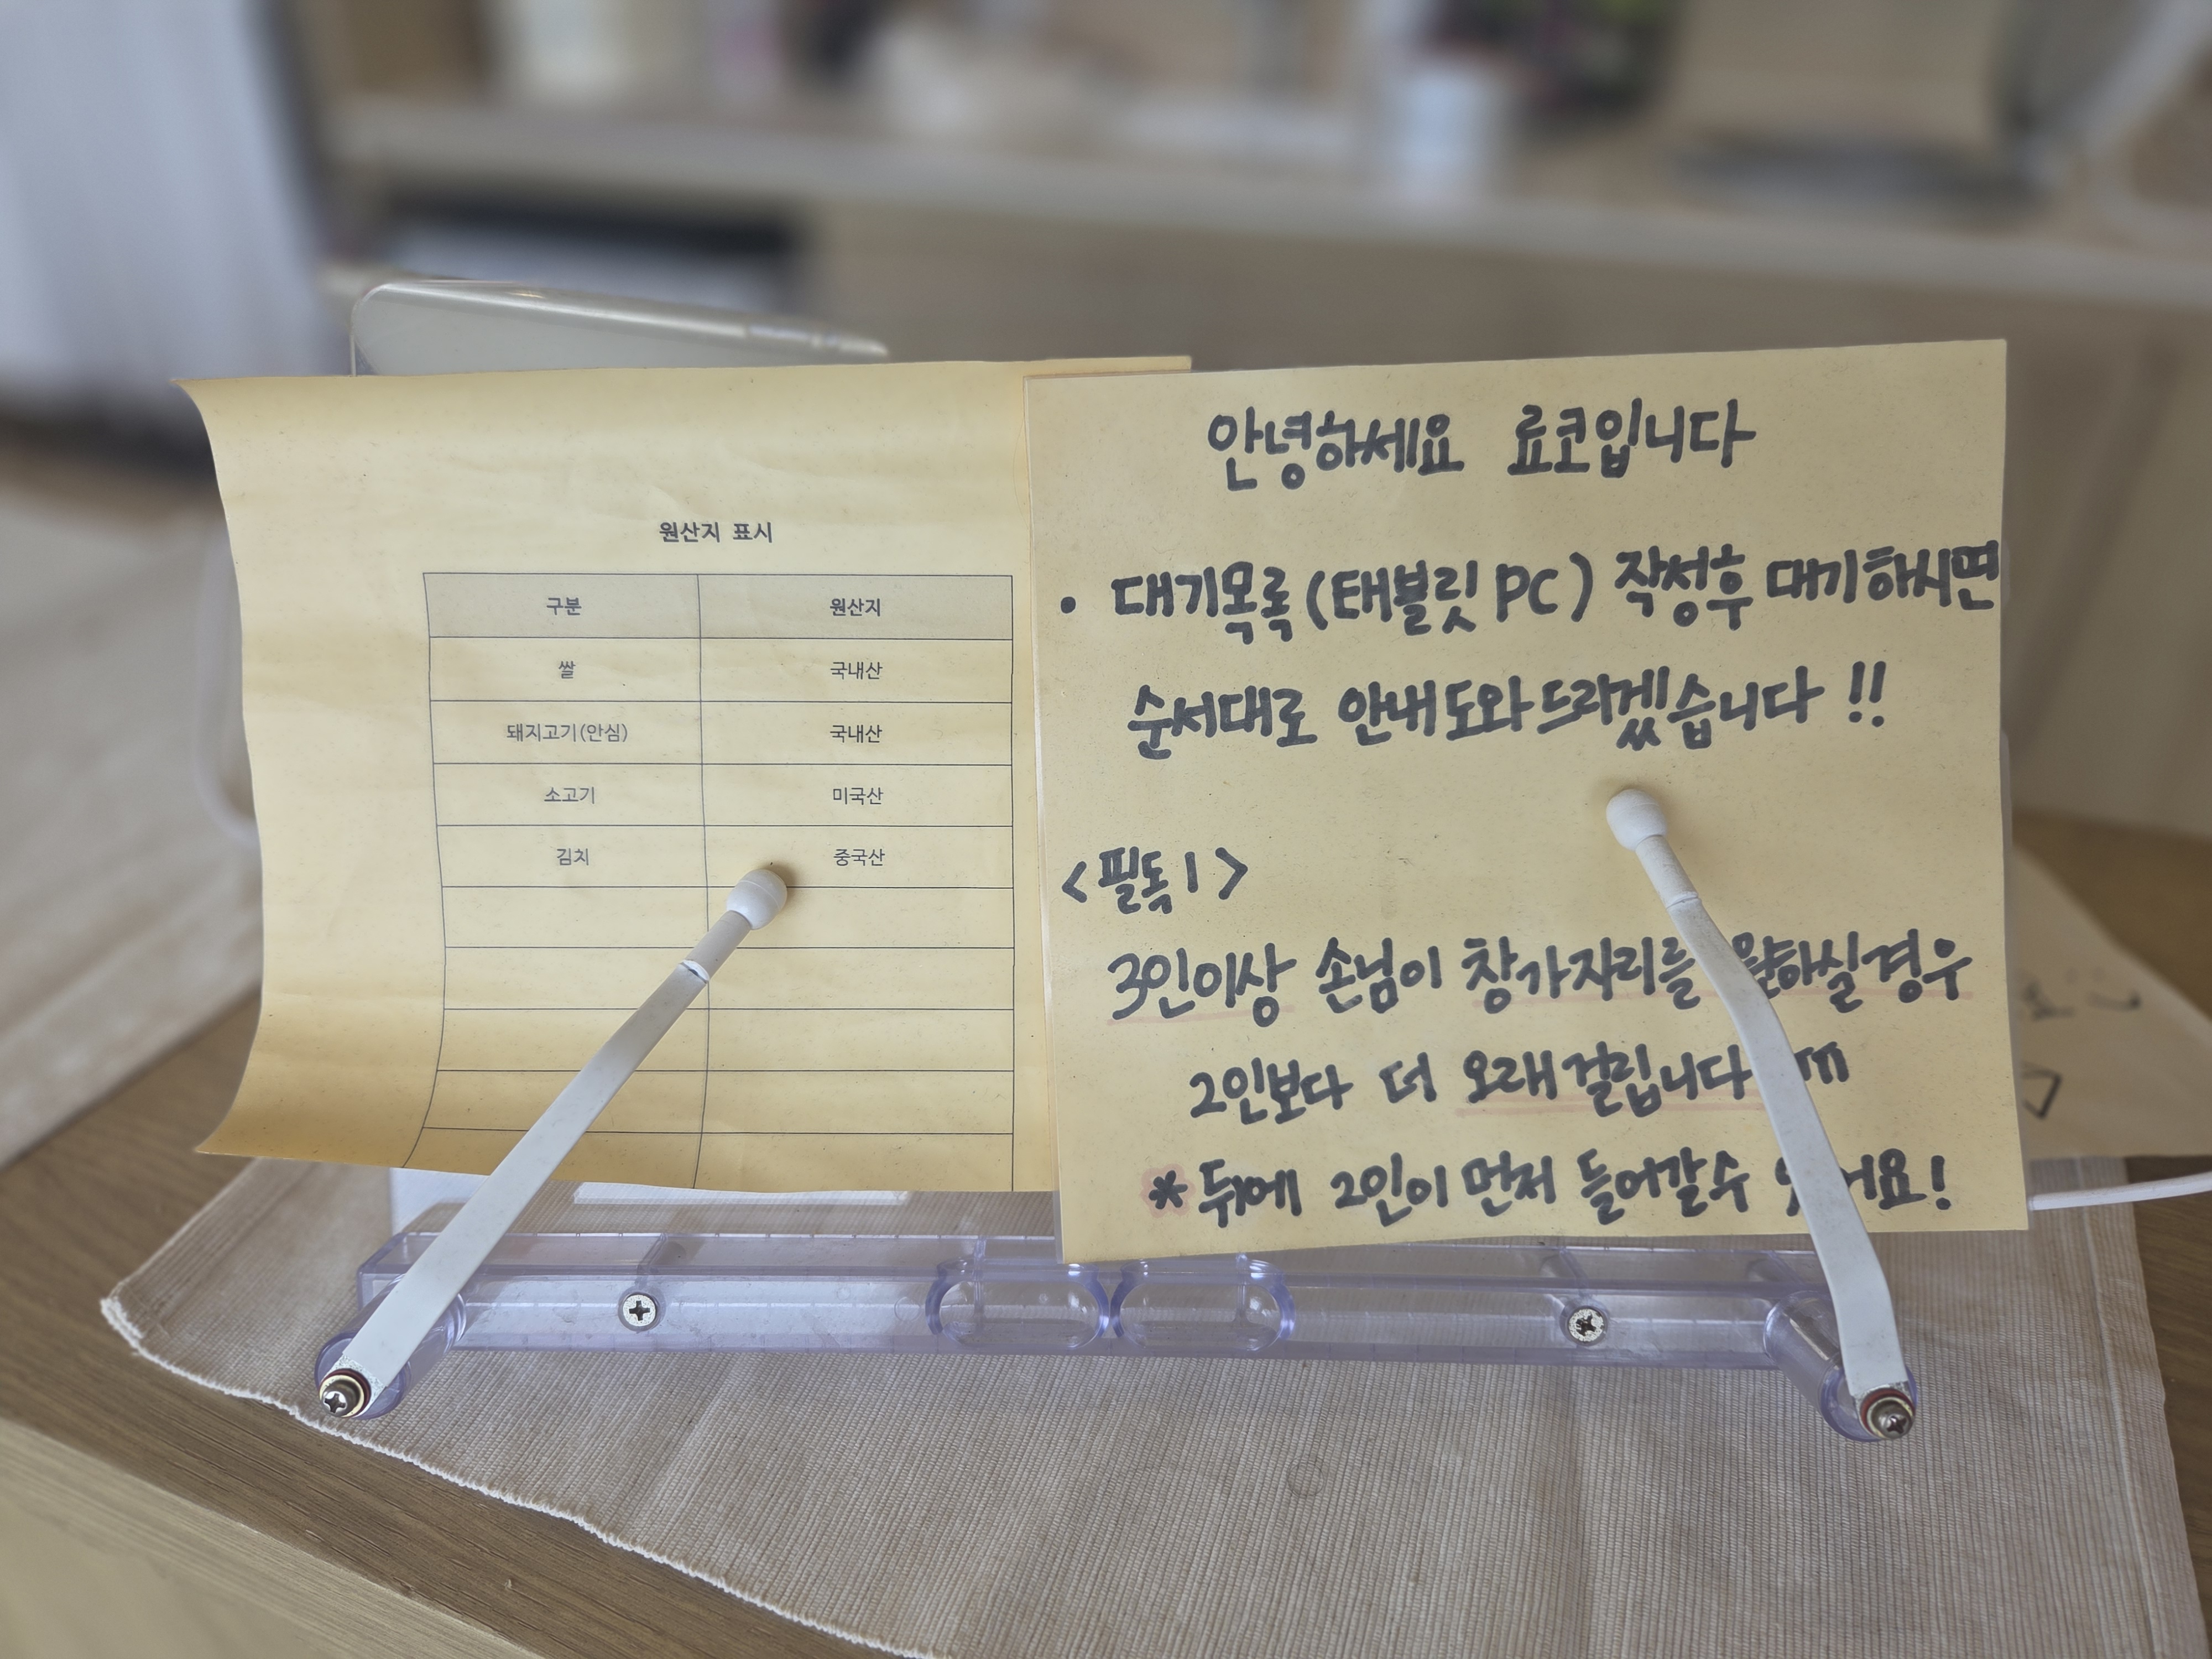 원산지 표시
구분 원산지
쌀 국내산
돼지고기(안심) 국내산
소고기 미국산
김치 중국산
안녕하세요 료코입니다
• 대기목록(태블릿 PC) 작성후 대기하시면
순서대로 안내도와드리겠습니다 !!
<필독!>
3인이상 손님이 창가자리를 원하실경우
2인보다 더 오래걸립니다
* 뒤에 2인이 먼저 들어갈수